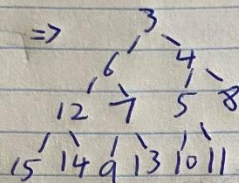 => 3
6 4
12 7 5 8
15 14 9 13 10 11